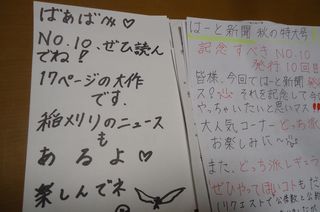 ばあばへ♡
NO.10、ぜひ読んでね!
17ページの大作です。
稲メリリのニュースもあるよ♡
楽しんでネ
はーと新聞 秋の特大号
記念すべきNO.10
発行10回目
皆様、今回ではーと新聞
それを記念して今
やっちゃいたいと思いマス!
大人気コーナーどっち派
お楽しみに~
また、どっち派レギュラ
ぜひやってほしいコトもだ